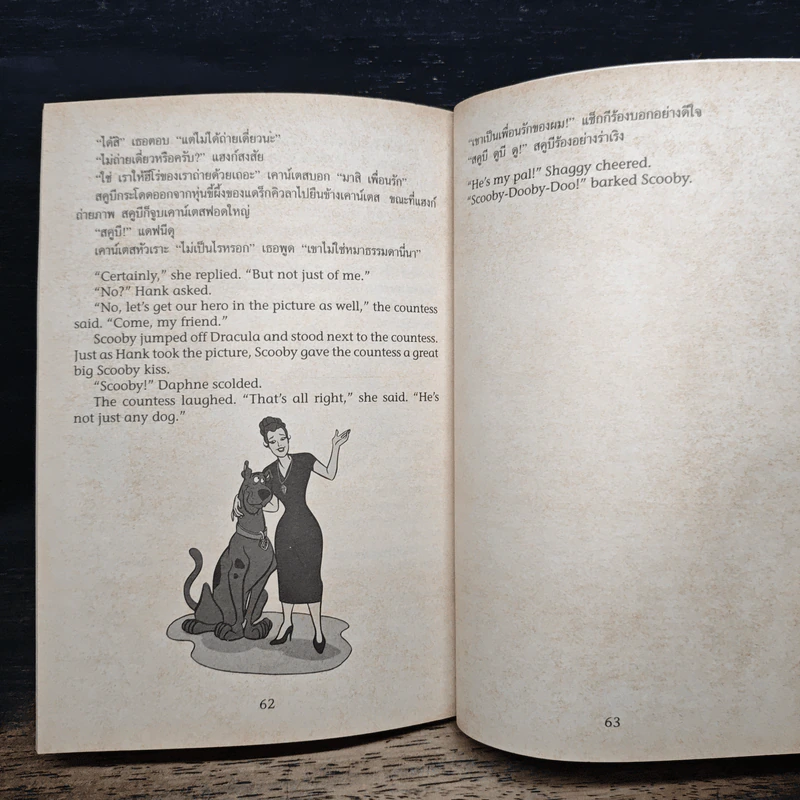 "ได้สิ" เธอตอบ "แต่ไม่ได้ถ่ายเดี่ยวนะ"
"ไม่ถ่ายเดี่ยวหรือครับ?" แฮงก์สงสัย
"ใช่ เราให้ฮีโร่ของเราถ่ายด้วยเถอะ" เคาน์เตสบอก "มาสิ เพื่อนรัก"
สคูบีกระโดดออกจากหุ่นขี้ผึ้งของแดร็กคิวลาไปยืนข้างเคาน์เตส ขณะที่แฮงก์
ถ่ายภาพ สคูบีก็จูบเคาน์เตสฟอดใหญ่
"สคูบี!" แดฟนีดุ
เคาน์เตสหัวเราะ "ไม่เป็นไรหรอก" เธอพูด "เขาไม่ใช่หมาธรรมดานี่นา"
"Certainly," she replied. "But not just of me."
"No?" Hank asked.
"No, let's get our hero in the picture as well," the countess
said. "Come, my friend."
Scooby jumped off Dracula and stood next to the countess.
Just as Hank took the picture, Scooby gave the countess a great
big Scooby kiss.
"Scooby!" Daphne scolded.
The countess laughed. "That's all right," she said. "He's
not just any dog."
62
"เขาเป็นเพื่อนรักของผม!" แช็กกีร้องบอกอย่างดีใจ
"สคูบี ดูบี ดู!" สคูบีร้องอย่างร่าเริง
"He's my pal!" Shaggy cheered.
"Scooby-Dooby-Doo!" barked Scooby.
63